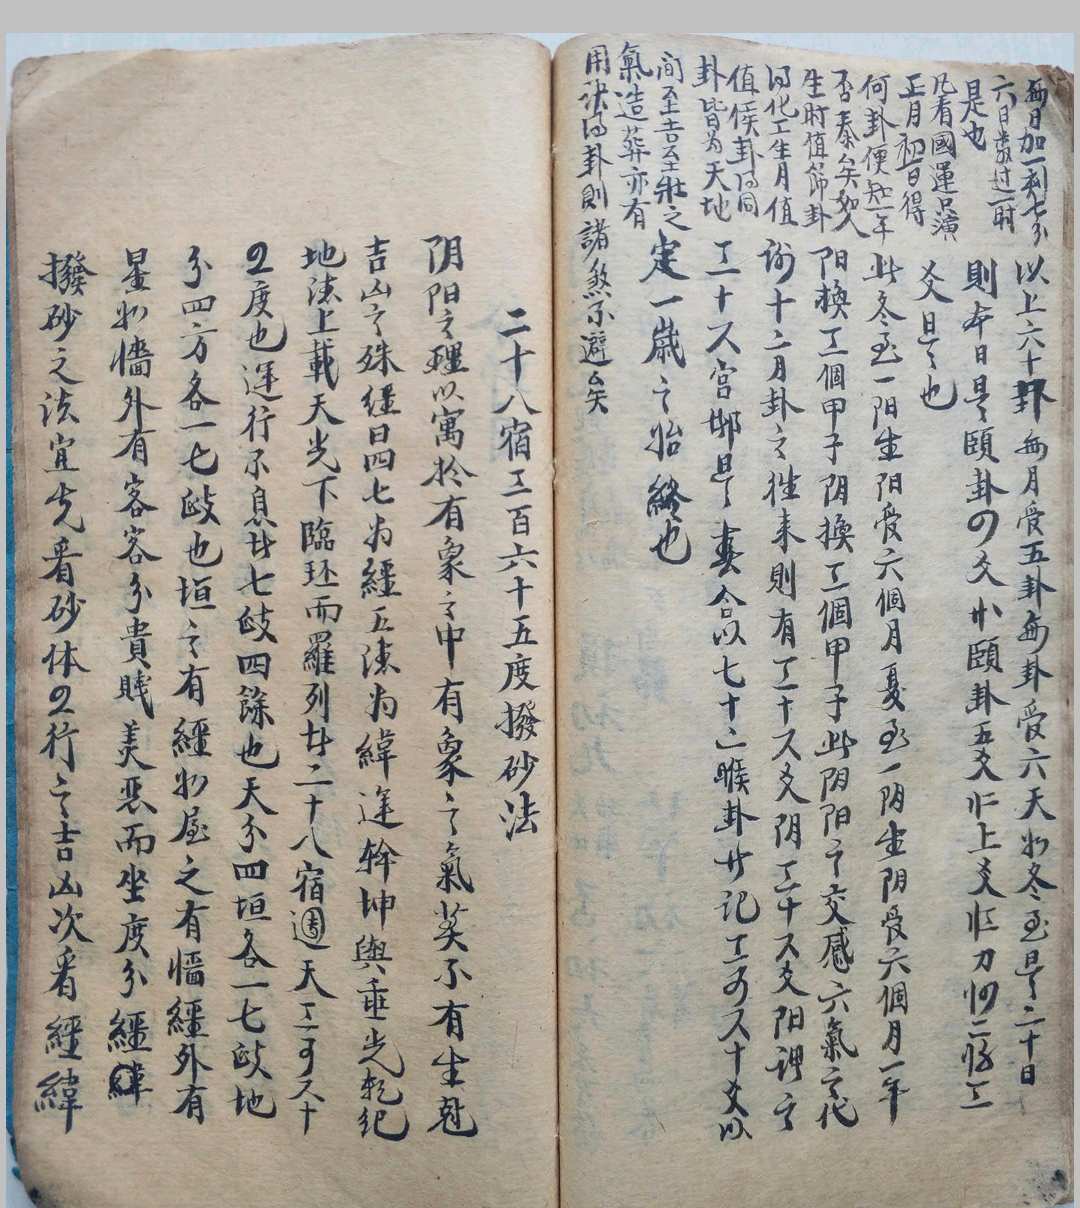 每月加一刻七分
六日數过一時
是也
凡看國運只演
正月初一日得
何卦便知一年
否泰矣如人
生时值節卦
得化工生月值
值候卦得同
卦皆为天地
间至吉至壯之
氣造葬亦有
用法得卦則諸煞不避矣
以上六十卦每月受五卦每卦受六天如冬至是二十日
則本日是頤卦
爻是也
此冬至一阳生阳受六個月夏至一阴生阴受六個月一年
阳換三個甲子阴換三個甲子此阴阳之交感六氣之代
谢十二月卦之徃来則有三十六爻阴三十六爻阳理之
三十六宮邵是春合以七十二候卦廿记三百六十爻以
定一歲之始終也
二十八宿三百六十五度撥砂法
阴阳之理以寓於有象之中有象之氣莫不有生尅
吉凶之殊經曰四七为經五德为緯运幹坤輿垂光乾紀
地德上載天光下臨环而羅列廿二十八宿週天三百六十
五度也運行不息廿七政四餘也天分四垣各一七政地
分四方各一七政也垣之有經如屋之有墻經外有
星如墻外有客客分貴賎美惡而坐度分經緯
撥砂之法宜先看砂体五行之吉凶次看經緯